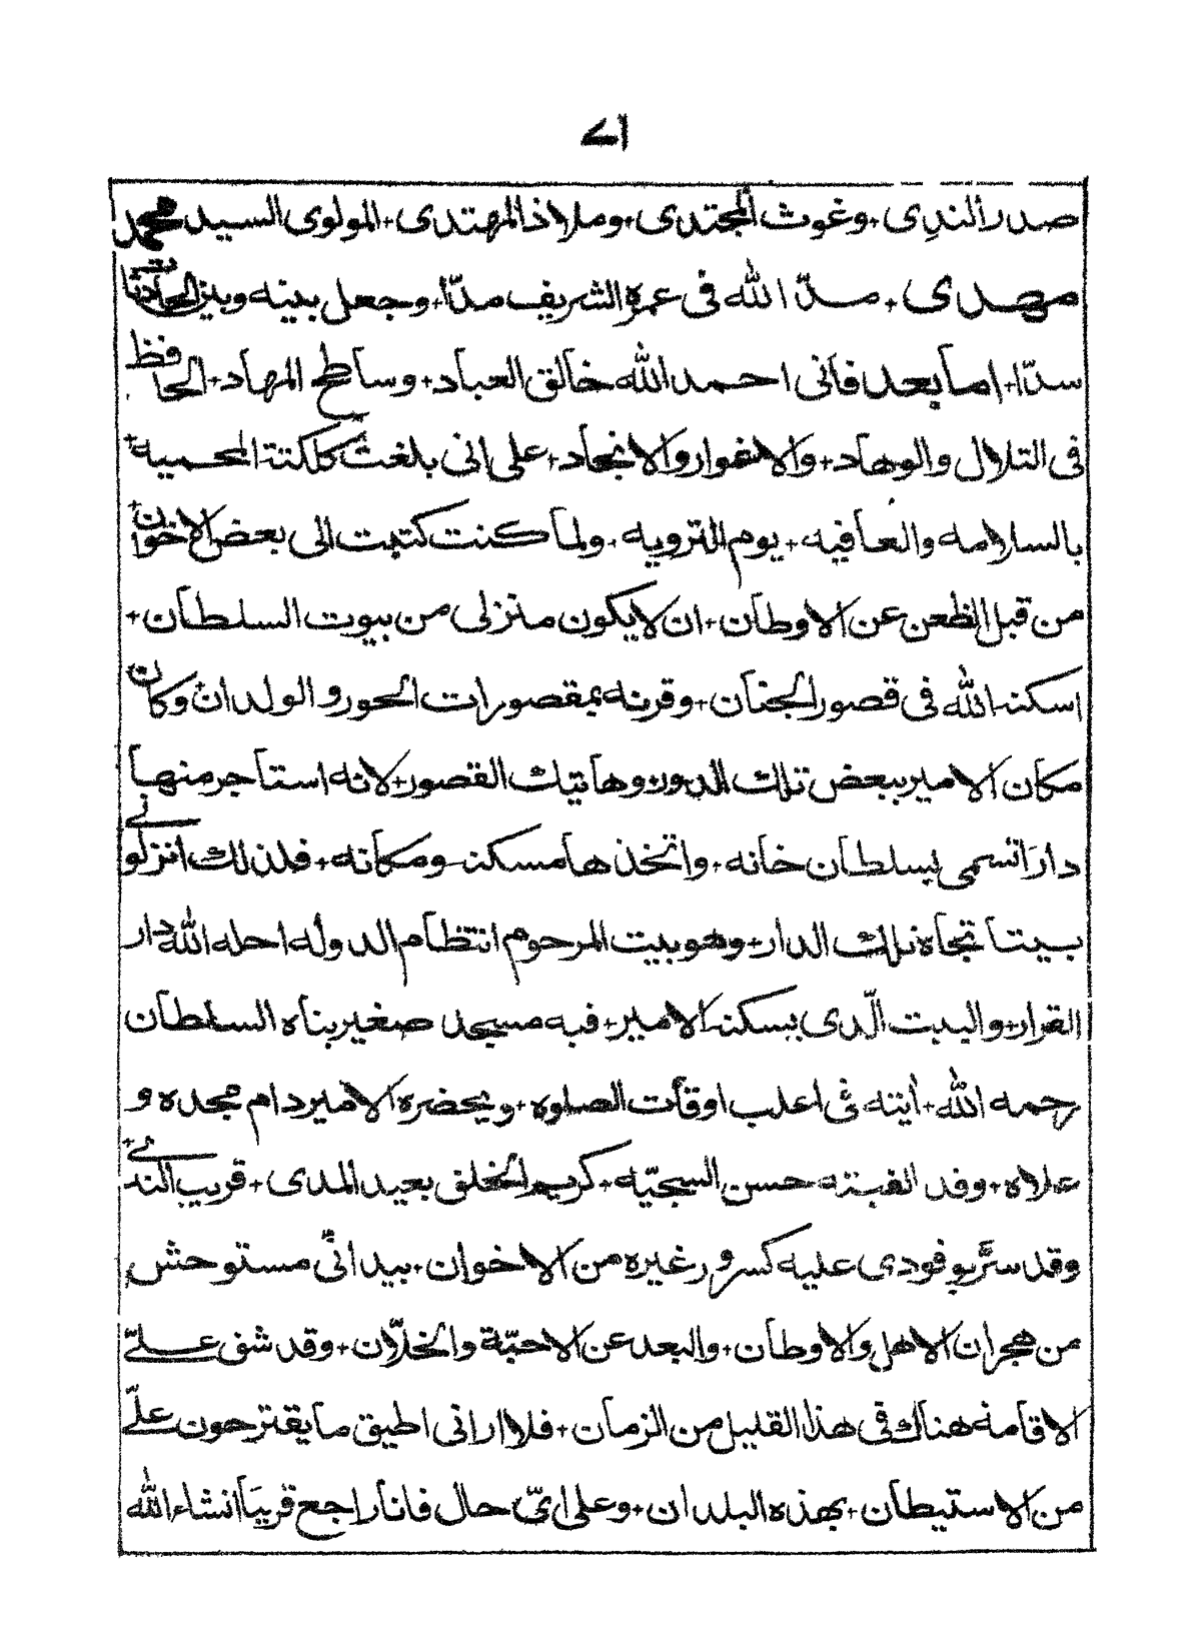 ا ے
صدر الندِى + وغوث المجتدى + وملاذ المهتدى + المولوى السيد محمد
مهدى + مدّ الله فى عمره الشريف مدّا + وجعل بينه وبين الحادثات
سدّا + اما بعد فانى احمد الله خالق العباد + وساطح المهاد + الحافظ
فى التلال والوهاد + والاغوار والانجاد + على انى بلغت كلكتة المحميه +
بالسلامه والعافيه + يوم الترويه + ولما كنت كتبت الى بعض الاخوان +
من قبل الظعن عن الاوطان + ان لا يكون منزلى من بيوت السلطان +
اسكنه الله فى قصور الجنان + وقرنه بمقصورات الحور والولدان + وكان
مكان الامير ببعض تلك الدور + وهاتيك القصور + لانه استاجر منها
دارَا تسمى بسلطان خانه + واتخذها مسكنه ومكانه + فلذلك انزلونے
بيتا تجاه تلك الدار + وهو بيت المرحوم انتظام الدوله احله الله دار
القرار + والبيت الّذى يسكنه الامير + فيه مسجد صغير بناه السلطان
رحمه الله + أيته فى اغلب اوقات الصلوه + ويحضره الامير دام مجده و
علاه + وقد الفيته حسن السجيّه + كريم الخلق بعيد المدى + قريب الندے +
وقد سرَّ بوفودى عليه كسرور غيره من الاخوان + بيد انّى مستوحش
من هجران الاهل والاوطان + والبعد عن الاحبّة والخلّان + وقد شق علـىّ
الاقامه هناك فى هذا القليل من الزمان + فلا ارانى اطيق ما يقترحون علىّ
من الاستيطان + بهذه البلدان + وعلى اىّ حال فانا راجع قريبَا انشاء الله